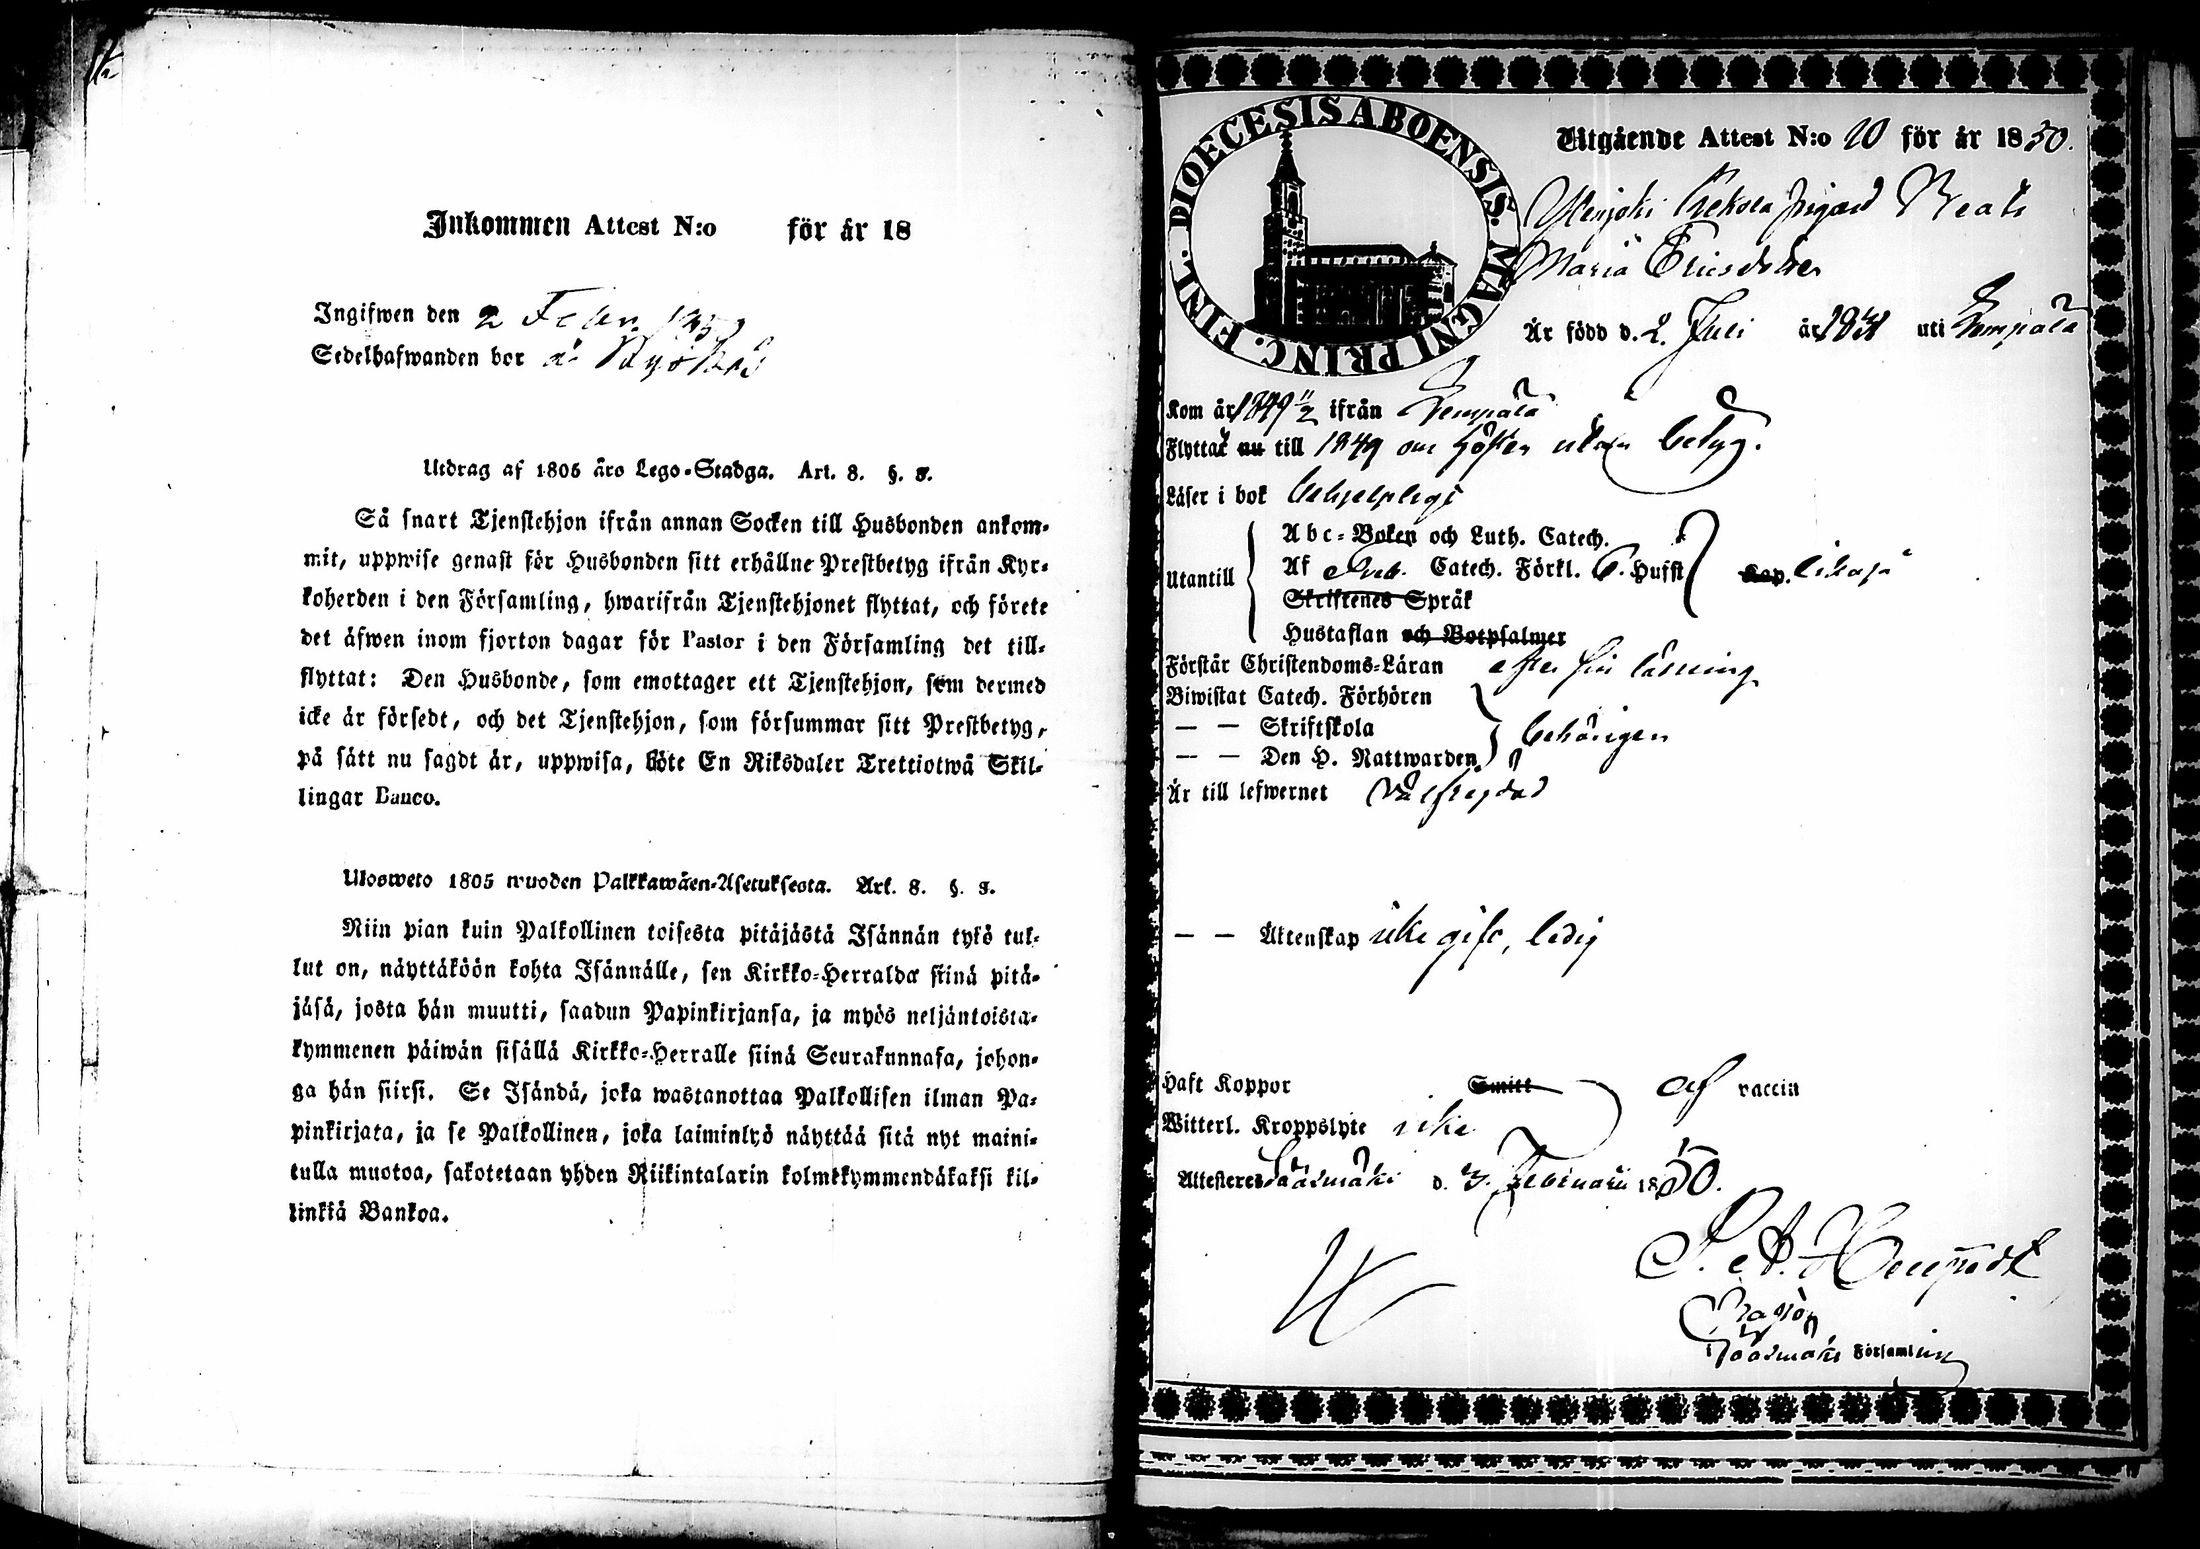 Inkommen Attest N:o för år 18
Ingifwen den 2 Febr.
Sedelhafwanden bor å
Utdrag af 1805 års Lego-Stadga. Art. 8. §. 3.
Så snart Tjenstehjon ifrån annan Socken till Husbonden ankom-
mit, uppwise genast för Husbonden sitt erhållne Prestbetyg ifrån Kyr-
koherden i den Församling, hwarifrån Tjenstehjonet flyttat, och förete
det äfwen inom fjorton dagar för Pastor i den Församling det till-
flyttat: Den Husbonde, som emottager ett Tjenstehjon, som dermed
icke är försedt, och det Tjenstehjon, som försummar sitt Prestbetyg,
på sätt nu sagdt är, uppwisa, böte En Riksdaler Trettiotwå Skil-
lingar Banco.
Ulosweto 1805 wuoden Palkkawäen-Asetuksesta. Art. 8. §. 3.
Niin pian kuin Palkollinen toisesta pitäjästä Isännän tykö tul-
lut on, näyttäköön kohta Isännälle, sen Kirkko-Herralda siinä pitä-
jäsä, josta hän muutti, saadun Papinkirjansa, ja myös neljäntoista-
kymmenen päiwän sisällä Kirkko-Herralle siinä Seurakunnasa, johon-
ga hän siirsi. Se Isändä, joka wastanottaa Palkollisen ilman Pa-
pinkirjata, ja se Palkollinen, joka laiminlyö näyttää sitä nyt maini-
tulla muotoa, sakotetaan yhden Riikintalarin kolmekymmendäkaksi kil-
linkiä Bankoa.
FINL. DIOECESIS ABOENSIS. MAGNI PRINC.
Utgående Attest N:o 20 för år 1850.
Beata
Maria Ericsdotter
Är född d. 2. Juli år uti Lempälä
Kom år 1849 11/2 ifrån Lempälä
Flyttat nu till 1849 om hösten utan betyg.
Läser i bok behjelpligt
Utantill
Abc-Boken och Luth. Catech.
Af Sveb. Catech. Förkl. 6. Hufst Kap. likaså
Skriftenes Språk
Hustaflan och Botpsalmer
Förstår Christendoms-Läran efter sin läsning
Biwistat Catech. Förhören
— — Skriftskola behörigen
— — Den H. Nattwarden
Är till lefwernet välfrejdad
— — Äktenskap icke gift, ledig
Haft Koppor Smitt af vaccin
Witterl. Kroppslyte icke
Attesteres Sääsmäki d. 3. Februarii 1850.
Pastor
Sääsmäki Församling